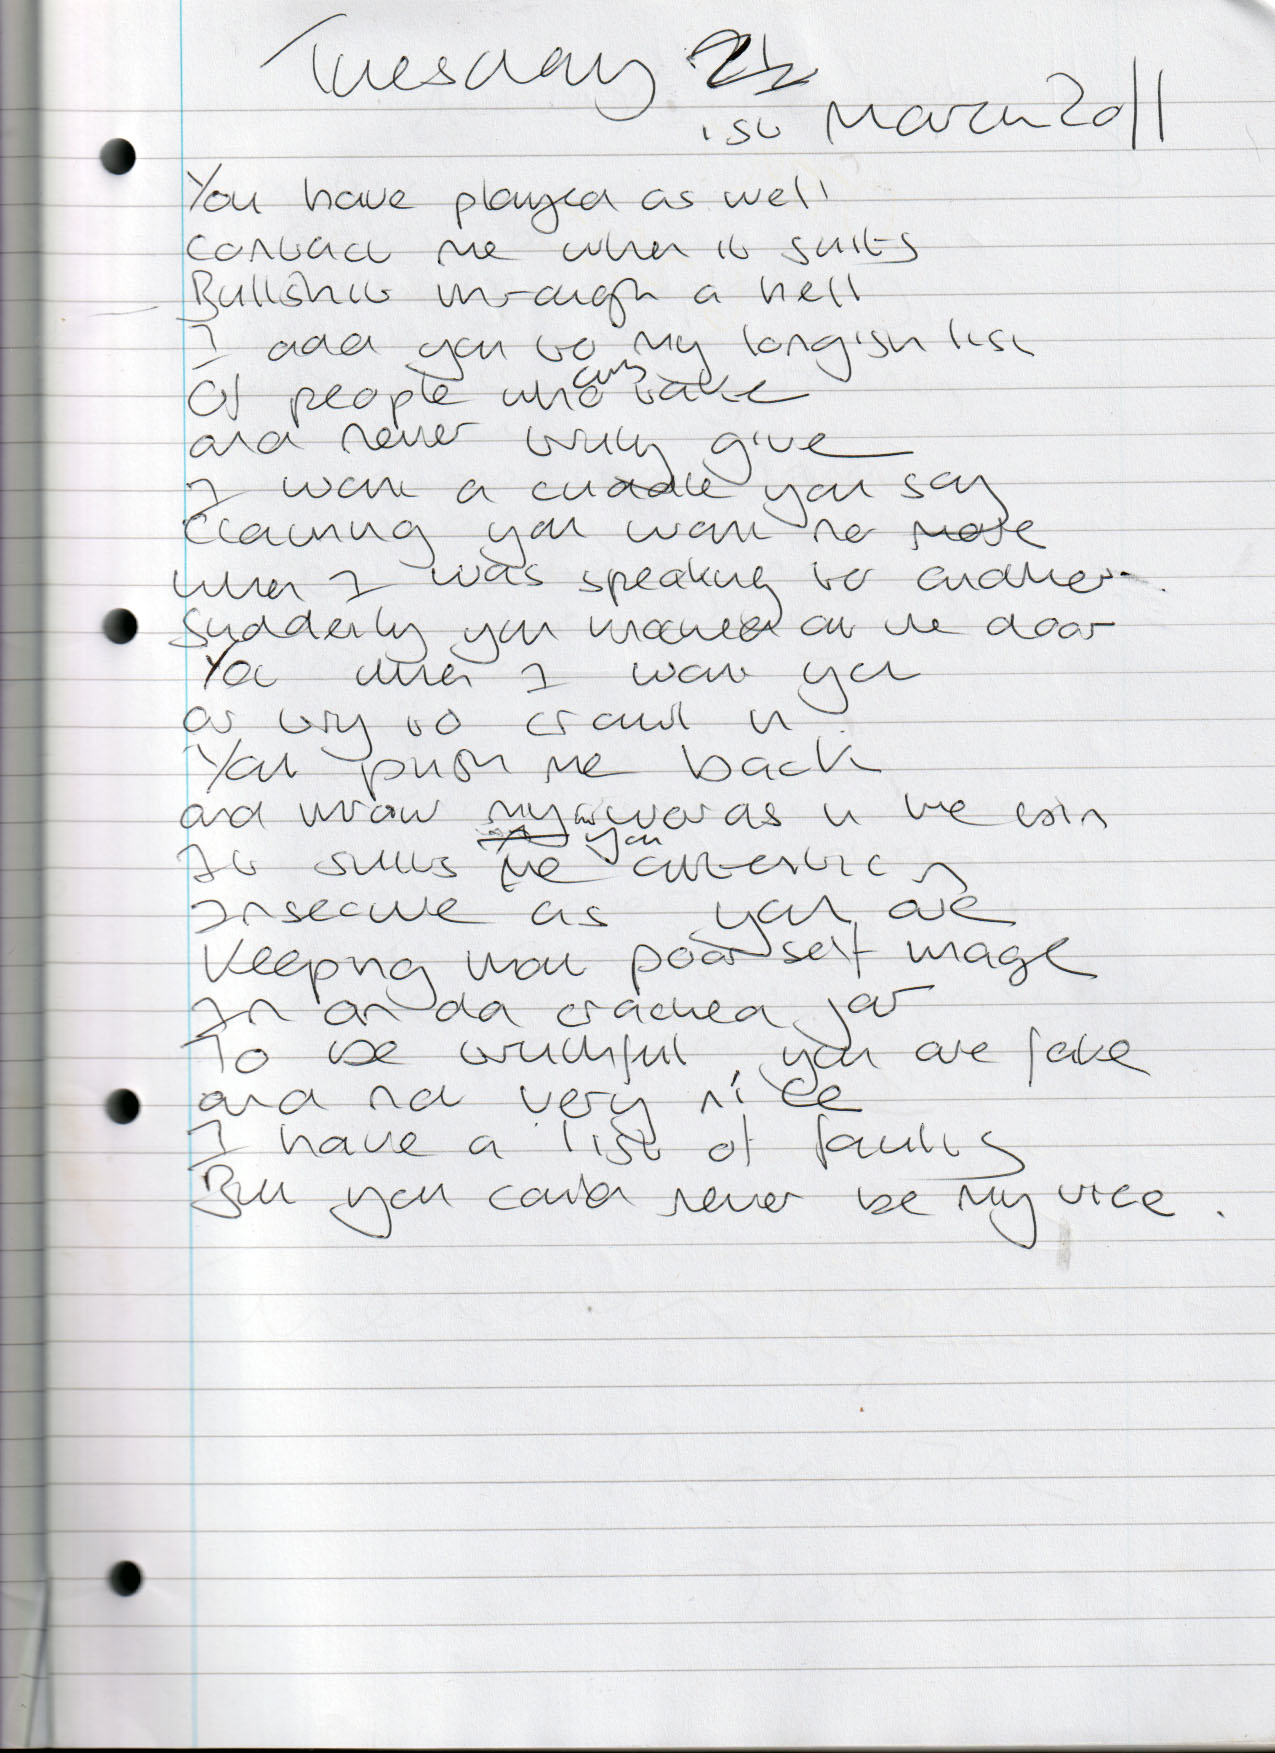 Tuesday
1st March 2011
You have played as well
Contact me when it suits
Bullshit through a hell
I add you to my longish list
Of people who only take
and never truly give
I want a cuddle you say
Claiming you want no more
when I was speaking to another
Suddenly you knocked on the door
Yet when I want you
or try to crawl in
You push me back
and throw my words in the bin
It suits you
Insecure as you are
Keeping your poor self image
In an old cracked jar
To be truthful you are fake
and not very nice
I have a list of faults
But you could never be my vice.